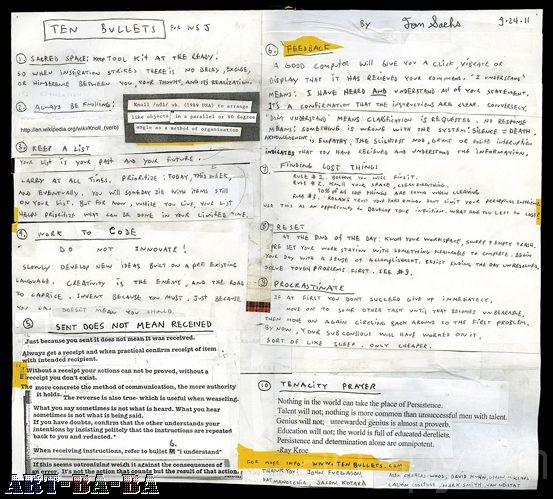 TEN BULLETS FOR WSJ
BY Tom Sachs 9.24.11
① SACRED SPACE: KEEP TOOL KIT AT THE READY!
SO WHEN INSPIRATION STRIKES THERE IS NO DELAY, EXCUSE,
OR HINDERENCE BETWEEN YOUR THOUGHT, AND ITS REALIZATION.
② ALWAYS BE KNOLLING:
http://en.wikipedia.org/wiki/Knoll_(verb)
Knoll /nōl/ vb. (1989 USA) to arrange
like objects in a parallel or 90 degree
angle as a method of organisation
③ KEEP A LIST
YOUR LIST IS YOUR PAST AND YOUR FUTURE.
CARRY AT ALL TIMES. PRIORITIZE: TODAY, THIS WEEK,
AND EVENTUALLY. YOU WILL SOMEDAY DIE WITH ITEMS STILL
ON YOUR LIST. BUT FOR NOW, WHILE YOU LIVE, YOUR LIST
HELPS PRIORITIZE WHAT CAN BE DONE IN YOUR LIMITED TIME.
④ WORK TO CODE
DO NOT INNOVATE!
SLOWLY DEVELOP NEW IDEAS BUILT ON A PRE EXISTING
LANGUAGE. CREATIVITY IS THE ENEMY, AND THE ROAD
TO CAPRICE. INVENT BECAUSE YOU MUST, JUST BECAUSE
YOU CAN DOES NOT MEAN YOU SHOULD.
⑤ SENT DOES NOT MEAN RECEIVED
Just because you sent it does not mean it was received.
Always get a receipt and when practical confirm receipt of item
with intended recipient.
Without a receipt your actions can not be proved, without a
receipt you don't exist.
The more concrete the method of communication, the more authority
it holds.
The reverse is also true- which is useful when weaseling.
What you say sometimes is not what is heard. What you hear
sometimes is not what is being said.
If you have doubts, confirm that the other understands your
intentions by insisting politely that the instructions are repeated
back to you and redacted."
6.
When receiving instructions, refer to bullet "i understand"
If this seems patronizing weigh it against the consequences of
an error. It's not the action that counts but the result of that action.
⑥ FEEDBACK
A GOOD COMPUTER WILL GIVE YOU A CLICK, VIBRATE OR
DISPLAY THAT IT HAS RECIEVED YOUR COMMAND. "I UNDERSTAND"
MEANS: I HAVE HEARD AND UNDERSTAND ALL OF YOUR STATEMENT.
IT'S A CONFIRMATION THAT THE INSTRUCTIONS ARE CLEAR. CONVERSELY,
"DON'T UNDERSTAND" MEANS: CLARIFICATION IS REQUESTED. NO RESPONSE
MEANS: SOMETHING IS WRONG WITH THE SYSTEM: SILENCE = DEATH
ACKNOWLEDGEMENT IS EMPATHY. THE SLIGHTEST NOD, GRUNT OR POLITE INTERRUPTION
INDICATES THAT YOU HAVE RECIEVED AND UNDERSTAND THE INFORMATION.
⑦ FINDING LOST THINGS
RULE #1. BELIEVE YOU WILL FIND IT.
RULE #2. KNOLL YOUR SPACE, CLEAN EVERYTHING.
70% OF ALL LOST THINGS ARE FOUND WHEN CLEANING
RULE #3. ALWAYS TRUST YOUR
USE THIS AS AN OPPORTUNITY TO DEVELOP YOUR INTUITION. WHAT HAVE YOU LEFT TO LOSE?
⑧ RESET
AT THE END OF THE DAY: KNOLL YOUR WORKSPACE, SWEEP & EMPTY TRASH.
PRE SET YOUR WORK STATION WITH SOMETHING REASONABLE TO COMPLETE. BEGIN
YOUR DAY WITH A SENSE OF ACCOMPLISHMENT. RESIST ENDING THE DAY UNRESOLVED,
SOLVE TOUGH PROBLEMS. FIRST. SEE #9.
⑨ PROCRASTINATE
IF AT FIRST YOU DON'T SUCCEED GIVE UP IMMEDIATELY.
MOVE ON TO SOME OTHER TASK UNTIL THAT BECOMES UNBEARABLE,
THEN MOVE ON AGAIN CIRCLING BACK AROUND TO THE FIRST PROBLEM.
BY NOW, YOUR SUBCONSCIOUS WILL HAVE WORKED ON IT,
SORT OF LIKE SLEEP, ONLY CHEAPER.
⑩ TENACITY PRAYER
Nothing in the world can take the place of Persistence.
Talent will not; nothing is more common than unsuccessful men with talent.
Genius will not; unrewarded genius is almost a proverb.
Education will not; the world is full of educated derelicts.
Persistence and determination alone are omnipotent.
-Ray Kroc
FOR MORE INFO: WWW.TENBULLETS.COM
THANK YOU: JOHN FURGASON,
PAT MANOCCHIA, JASON KOTARA
ART-BA-BA